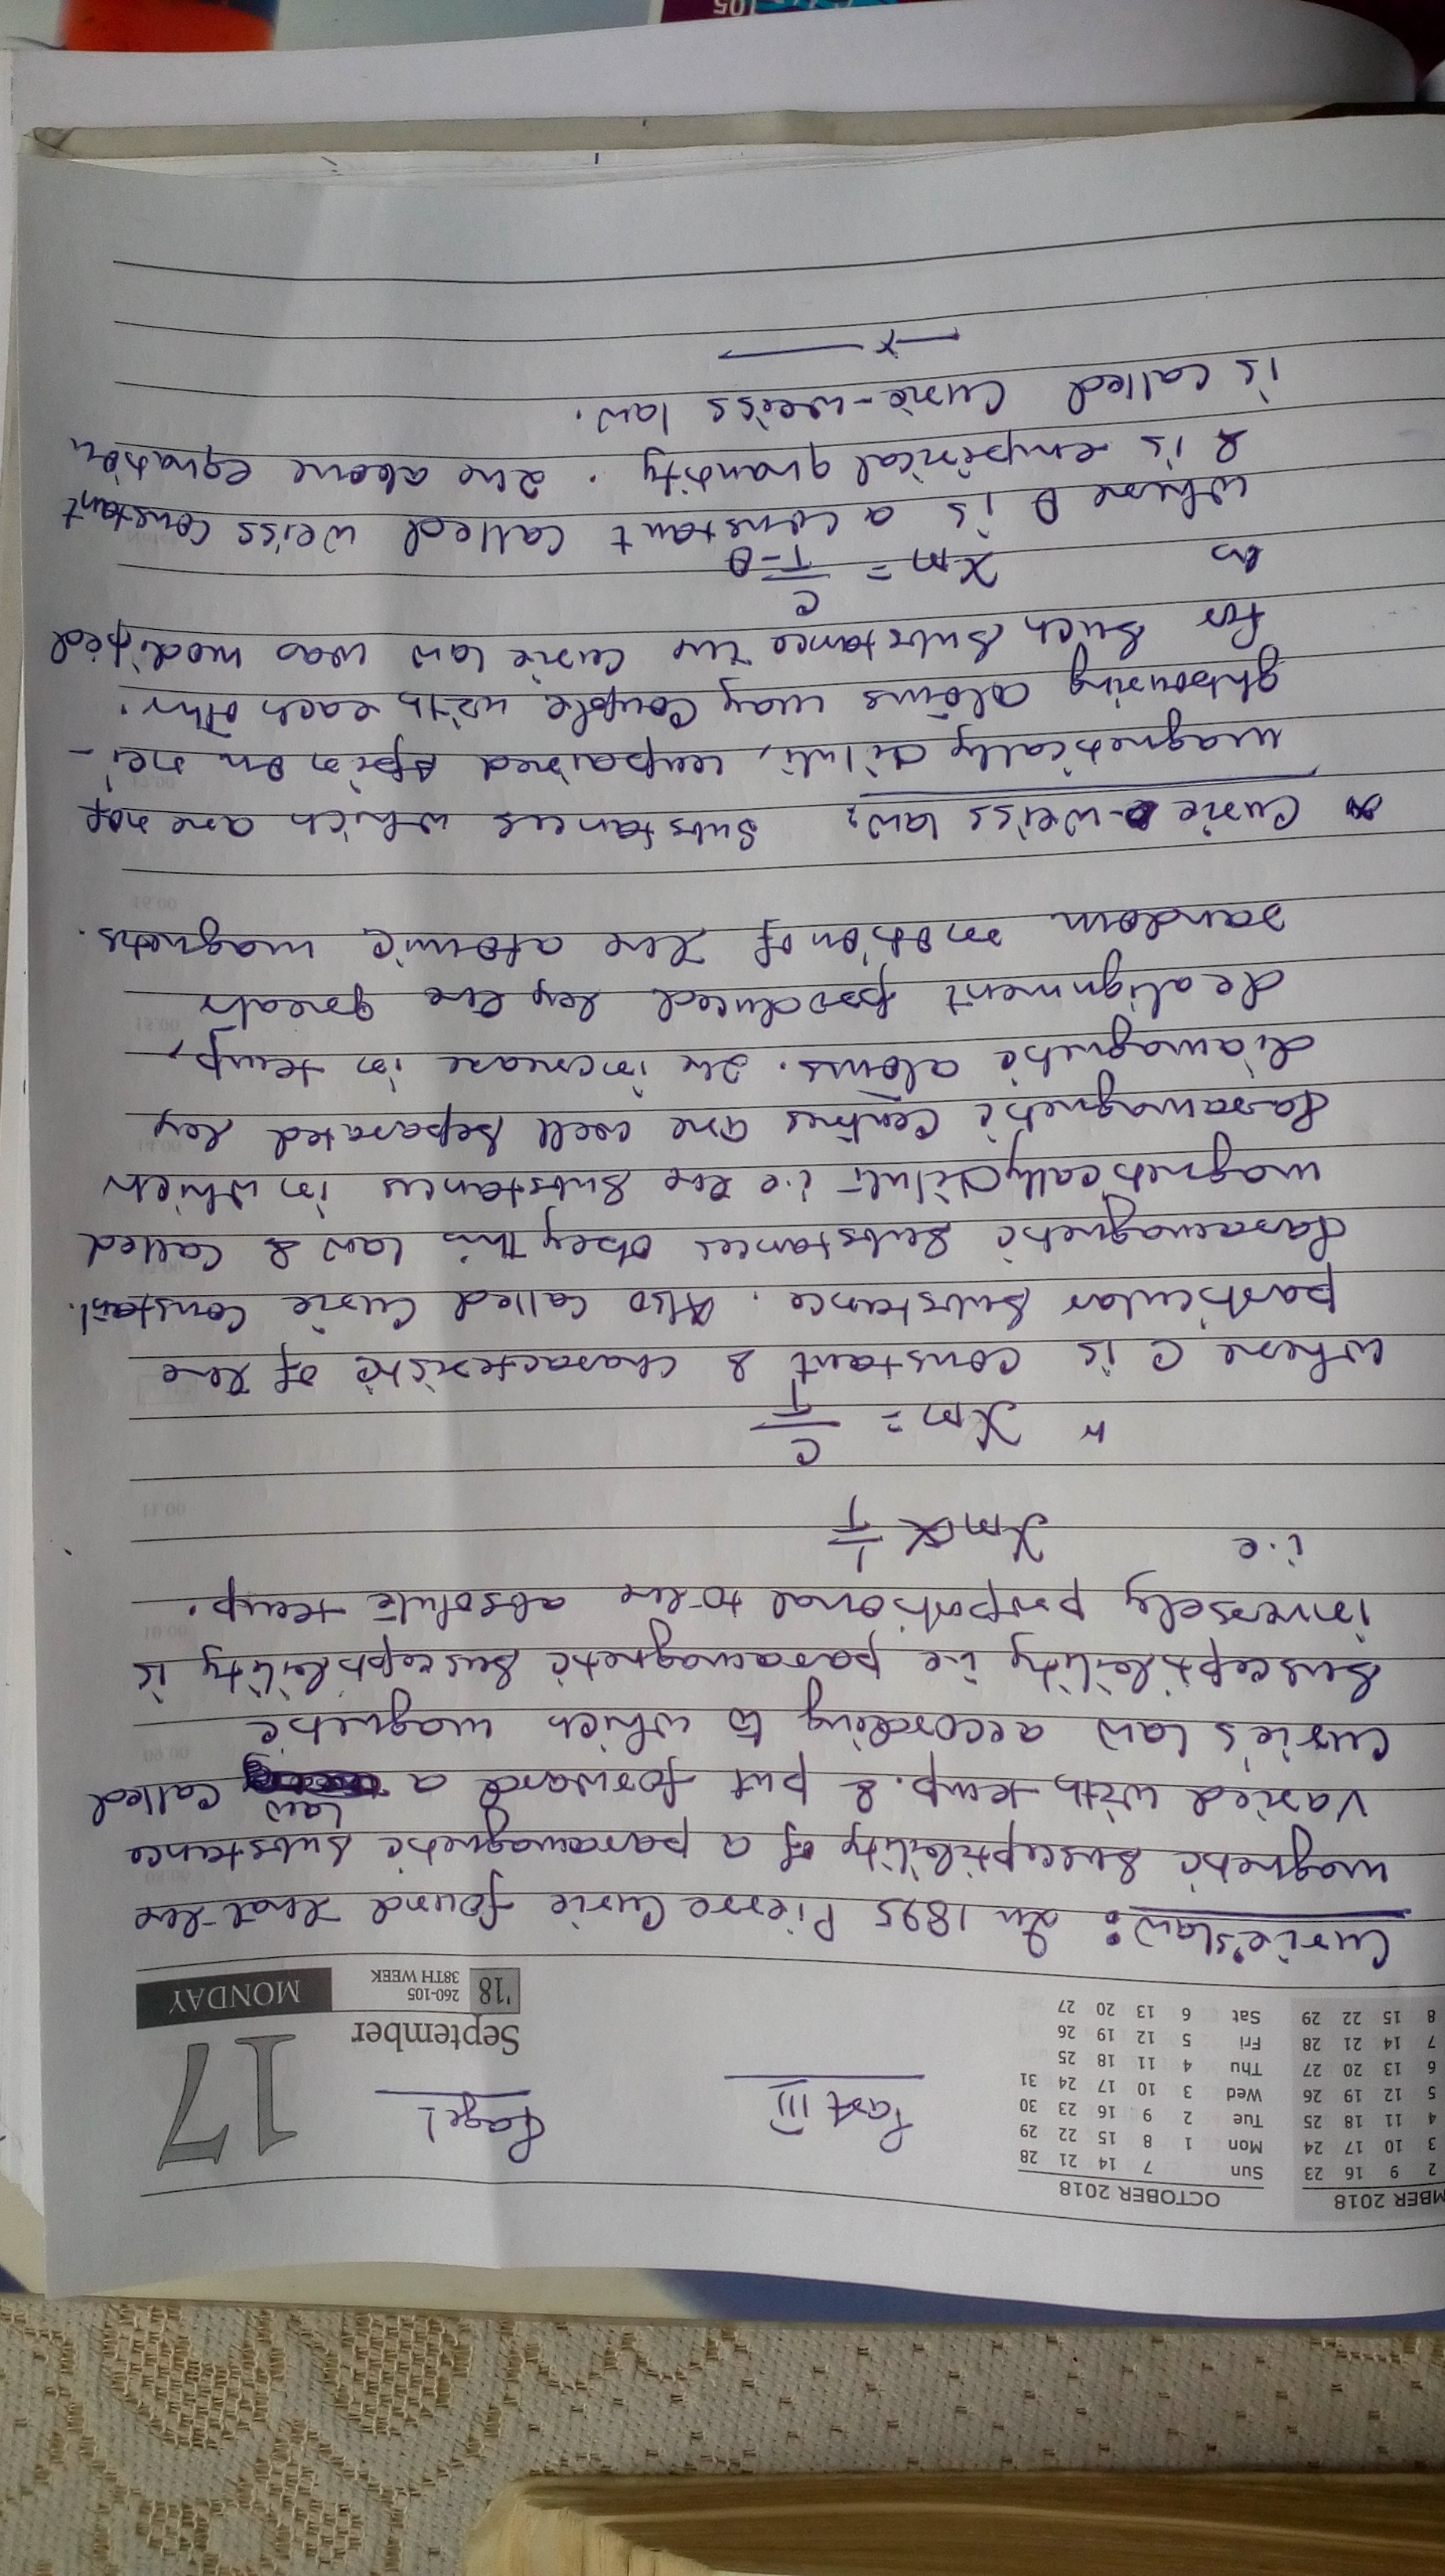 MBER 2018
2 9 16 23
3 10 17 24
4 11 18 25
5 12 19 26
6 13 20 27
7 14 21 28
8 15 22 29
OCTOBER 2018
Sun 7 14 21 28
Mon 1 8 15 22 29
Tue 2 9 16 23 30
Wed 3 10 17 24 31
Thu 4 11 18 25
Fri 5 12 19 26
Sat 6 13 20 27
Part III
Page 1
17
September
'18 260-105
38TH WEEK
MONDAY
Curie's law: In 1895 Pierre Curie found that the
magnetic susceptibility of a paramagnetic substance
varied with temp. & put forward a law called
Curie's law according to which magnetic
susceptibility i.e paramagnetic susceptibility is
inversely proportional to the absolute temp.
i.e χm ∝ 1/T
χm = C/T
where C is constant & characteristic of the
particular substance. Also called Curie constant.
Paramagnetic substances obey this law & called
magnetically dilute i.e the substances in which
Paramagnetic centres are well separated by
diamagnetic atoms. The increase in temp,
dealignment produced by the greater
random motion of the atomic magnets.
Curie-Weiss law: Substances which are not
magnetically dilute, unpaired spin on nei-
ghbouring atoms may couple with each other.
For such substance the Curie law was modified
as χm = C/T-θ
where θ is a constant called Weiss constant
& is empirical quantity. The above equation
is called Curie-Weiss law.
—x—
105